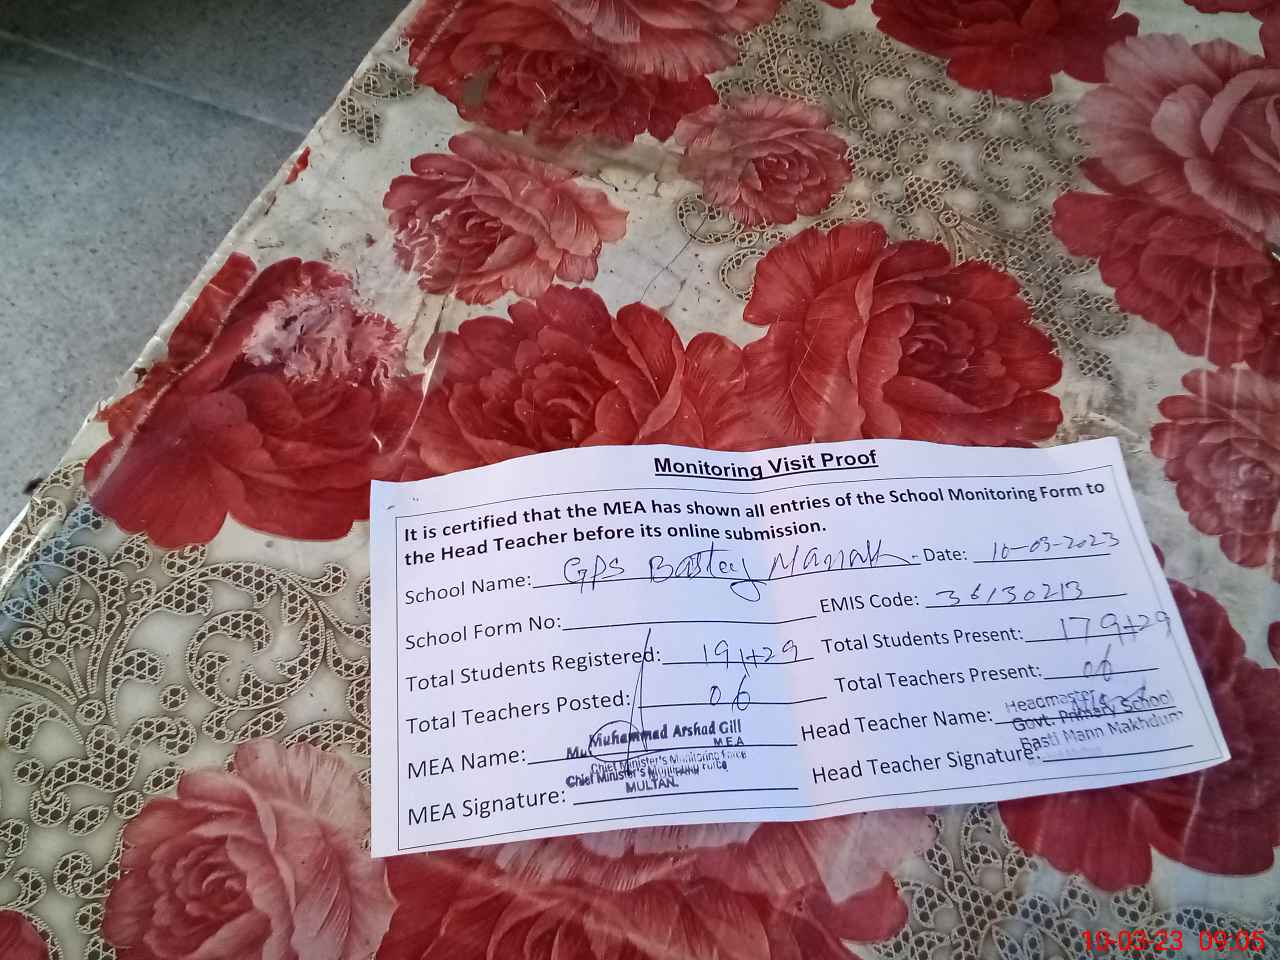 Monitoring Visit Proof
It is certified that the MEA has shown all entries of the School Monitoring Form to
the Head Teacher before its online submission.
School Name: GPS Date: 10-03-2023
School Form No: EMIS Code: 36130213
Total Students Registered: 191+29 Total Students Present: 179+29
Total Teachers Posted: 06 Total Teachers Present: 06
MEA Name: Muhammad Arshad Gill Head Teacher Name: Headmaster
M.E.A Govt. Primary School
Chief Minister's Monitoring Force Basti Mann Makhdum
Chief Minister's Monitoring Force
MULTAN.
MEA Signature: Head Teacher Signature:
10-03-23 09:05